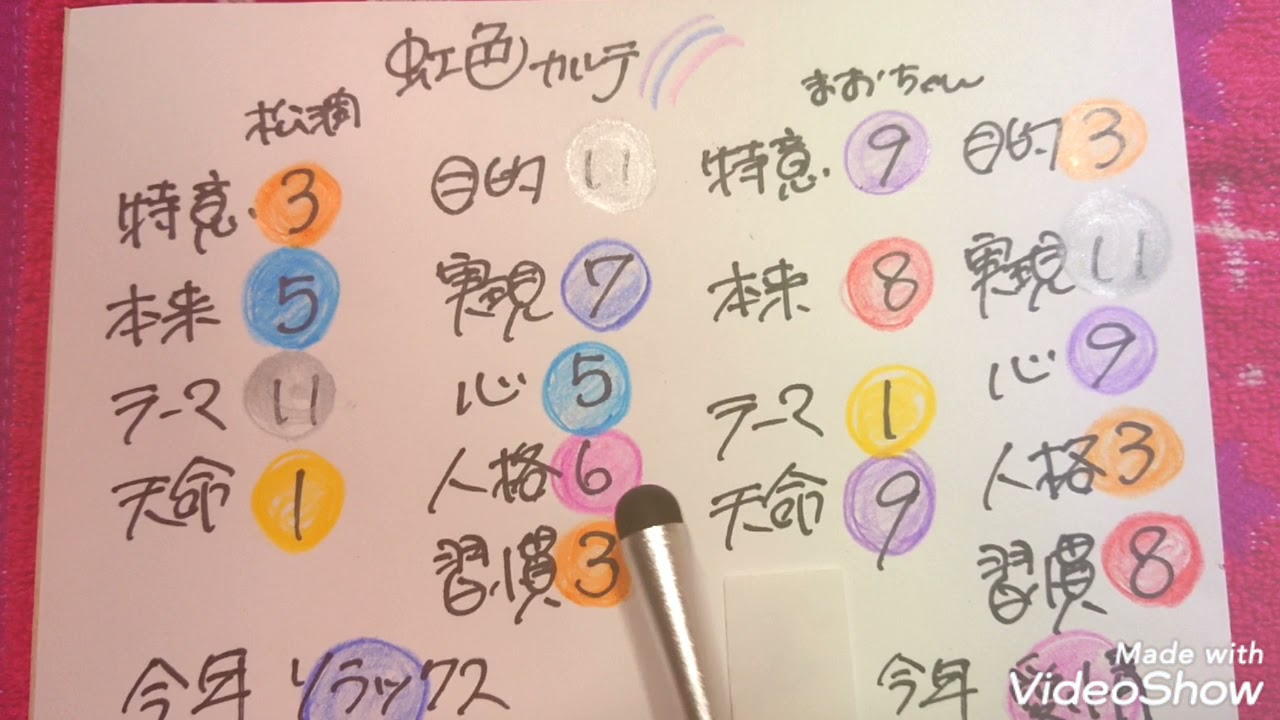 虹色カルテ
松潤
特意・3
本来 5
テーマ 11
天命 1
目的 11
実現 7
心 5
人格 6
習慣 3
今年 リラックス
まおちゃん
特意・9
本来 8
テーマ 1
天命 9
目的 3
実現 11
心 9
人格 3
習慣 8
今年
Made with
VideoShow